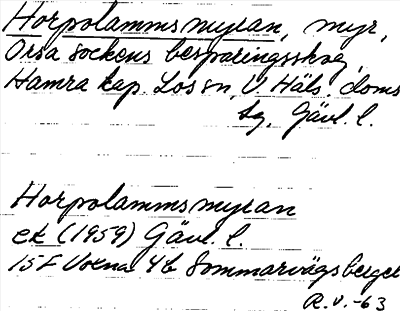 Horpolammsmyran, myr,
Orsa sockens besparingsskog,
Hamra kap. Los sn, V. Häls. doms
sg, Gävl. l.
Horpolammsmyran
ek (1959) Gävl. l.
15F Voxna 4b Sommarvägsberget
R.V.-63